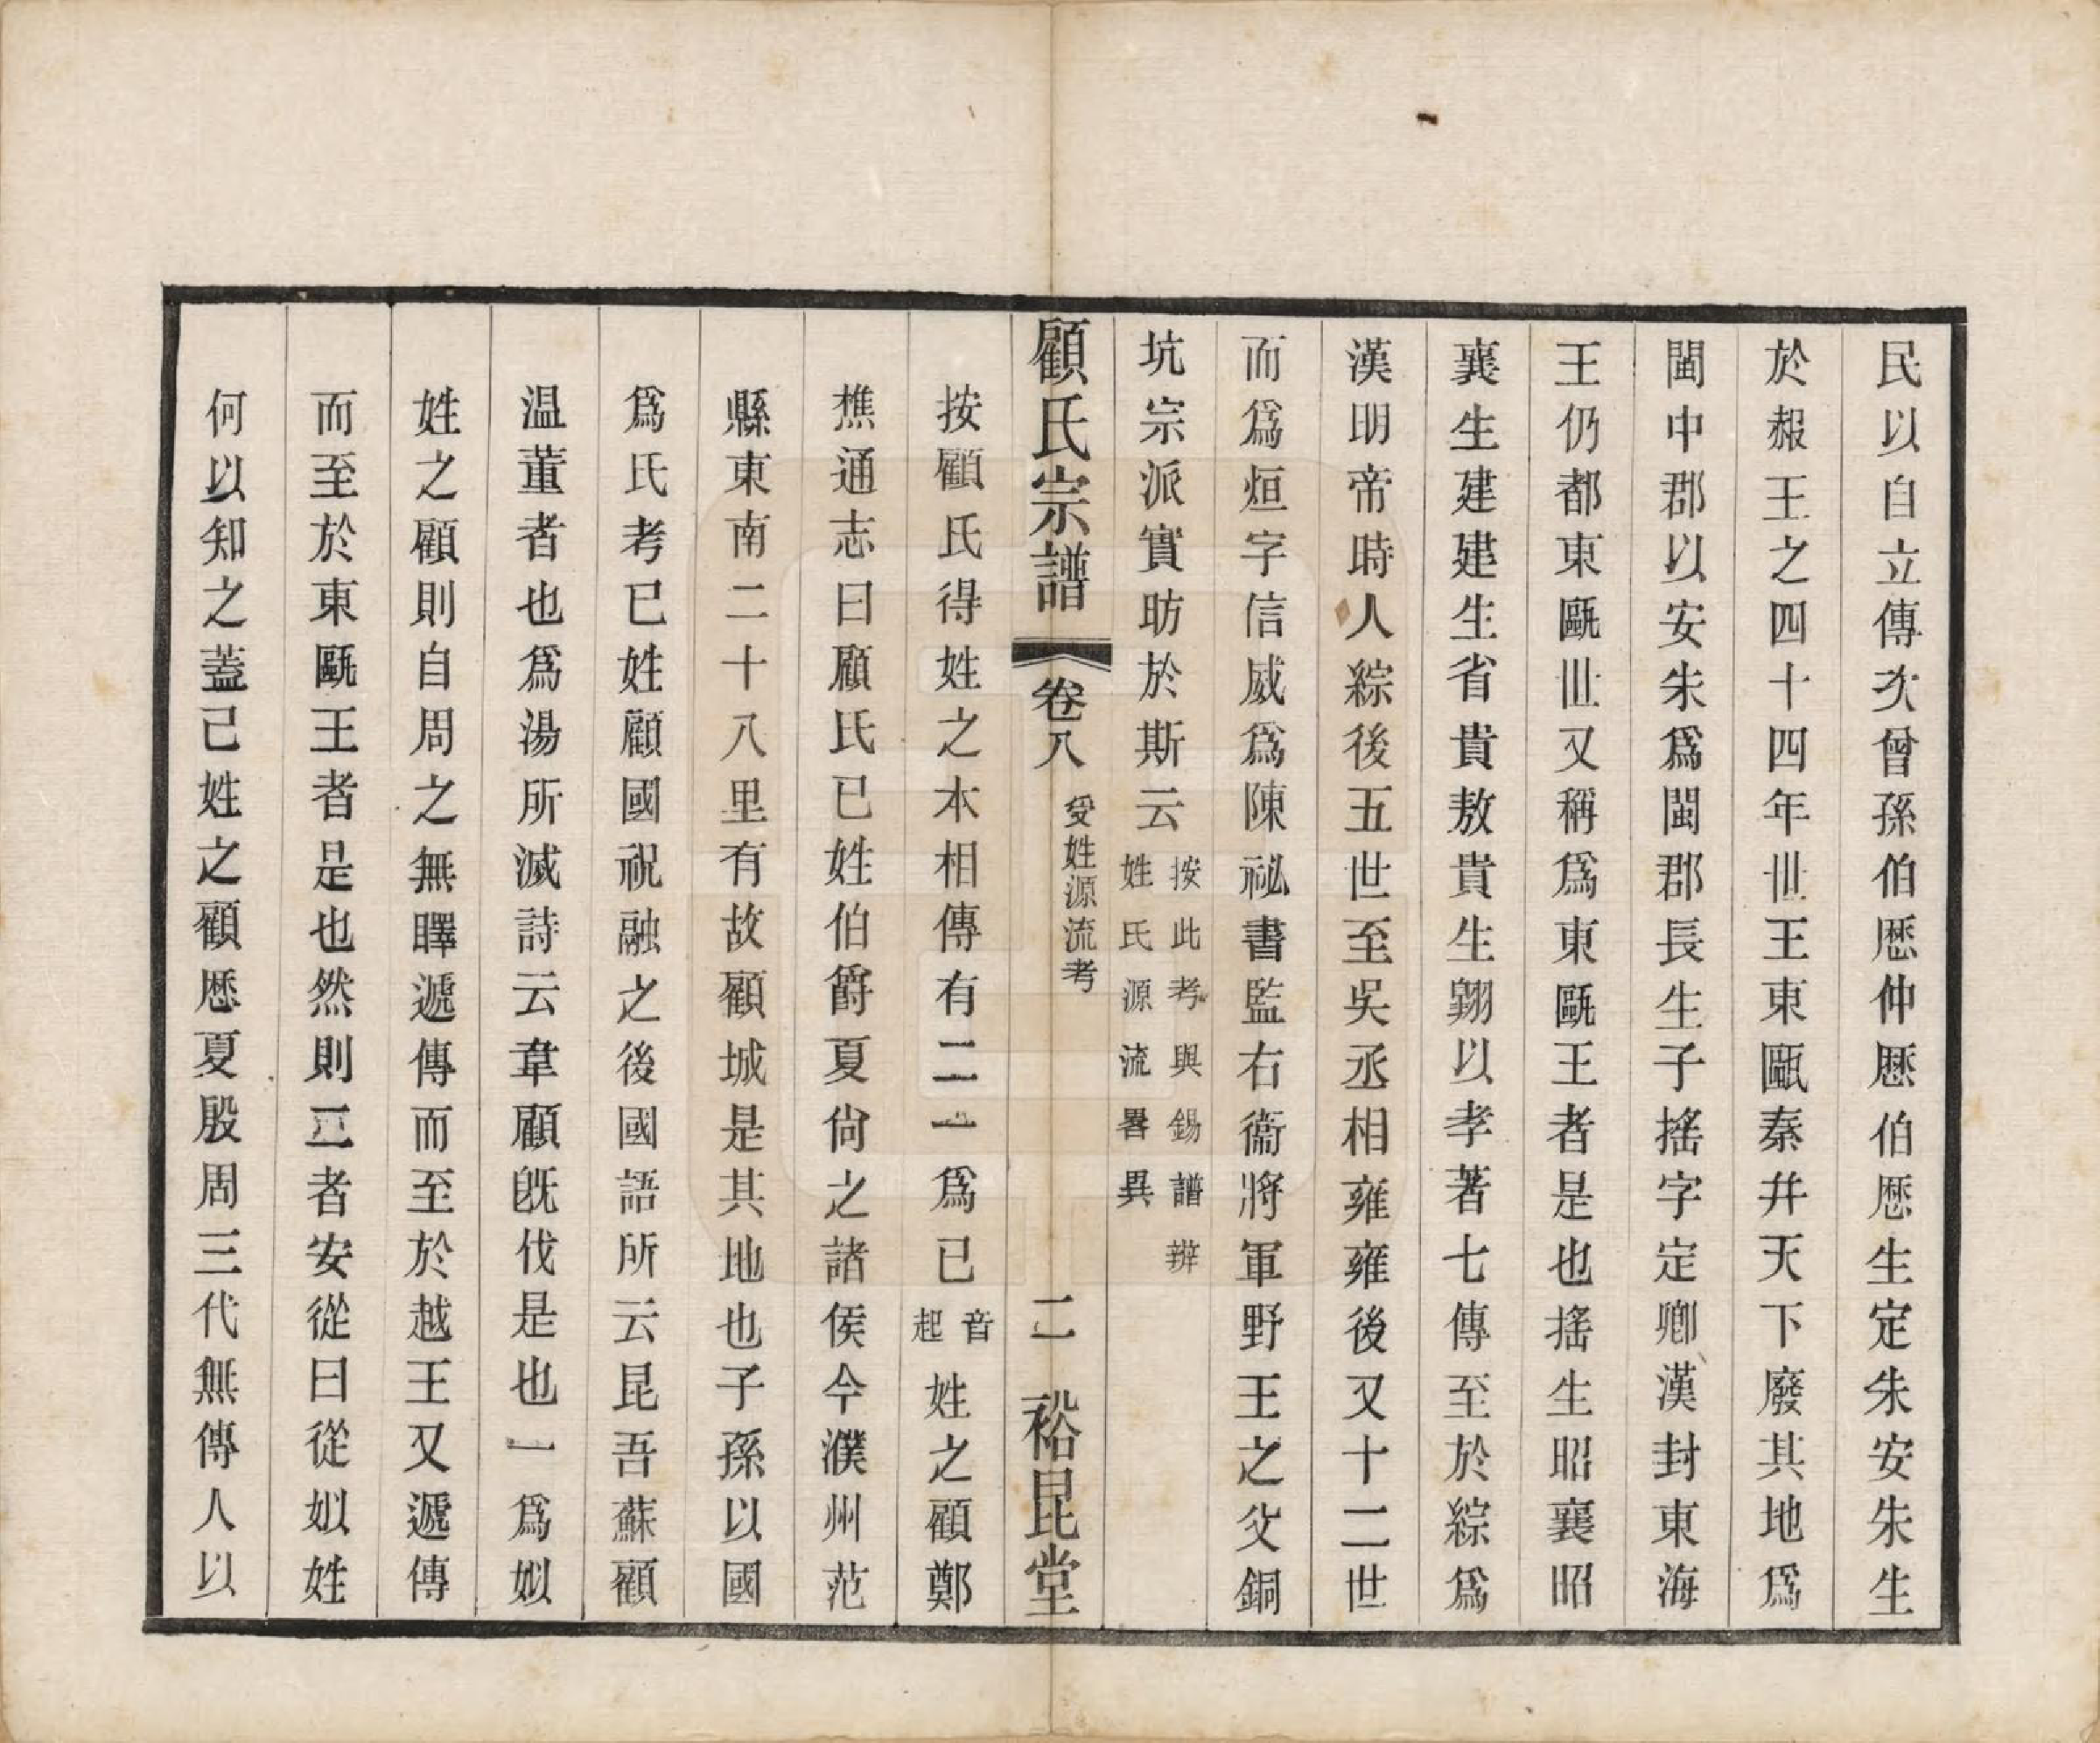 民以自立傳次曾孫伯厯仲厯伯厯生定朱安朱生
於赧王之四十四年世王東甌秦幷天下廢其地爲
閩中郡以安朱爲閩郡長生子搖字定卿漢封東海
王仍都東甌世又稱爲東甌王者是也搖生昭襄昭
襄生建建生省貴敖貴生翺以孝著七傳至於綜爲
漢明帝時人綜後五世至吳丞相雍雍後又十二世
而爲烜字信威爲陳祕書監右衞將軍野王之父銅
坑宗派實昉於斯云按此考與錫譜辨姓氏源流畧異
顧氏宗譜 卷八 受姓源流考 二 裕昆堂
按顧氏得姓之本相傳有二一爲已音起姓之顧鄭
樵通志曰顧氏已姓伯爵夏尙之諸侯今濮州范
縣東南二十八里有故顧城是其地也子孫以國
爲氏考已姓顧國祝融之後國語所云昆吾蘇顧
温董者也爲湯所滅詩云韋顧旣伐是也一爲姒
姓之顧則自周之無㽅遞傳而至於越王又遞傳
而至於東甌王者是也然則二者安從曰從姒姓
何以知之蓋己姓之顧厯夏殷周三代無傳人以